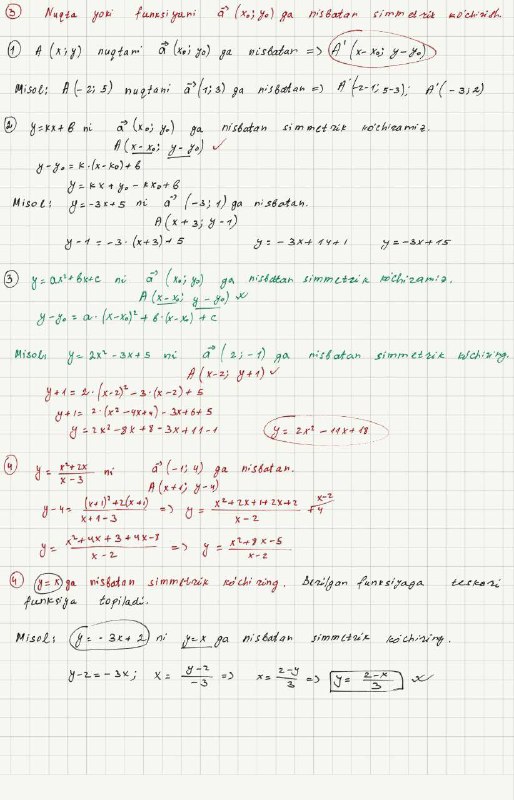 ③ Nuqta yoki funksiyani a⃗ (x₀; y₀) ga nisbatan simmetrik ko'chirish.
① A (x; y) nuqtani a⃗ (x₀; y₀) ga nisbatan => A' (x-x₀; y-y₀)
Misol: A(-2; 5) nuqtani a⃗ (1; 3) ga nisbatan => A'(-2-1; 5-3); A'(-3; 2)
② y=kx+b ni a⃗ (x₀; y₀) ga nisbatan simmetrik ko'chiramiz.
A(x-x₀; y-y₀) ✓
y-y₀=k·(x-x₀)+b
y=kx+y₀-kx₀+b
Misol: y=-3x+5 ni a⃗ (-3; 1) ga nisbatan.
A(x+3; y-1)
y-1=-3·(x+3)+5 y=-3x+14+1 y=-3x+15
③ y=ax²+bx+c ni a⃗ (x₀; y₀) ga nisbatan simmetrik ko'chiramiz.
A(x-x₀; y-y₀)
y-y₀=a·(x-x₀)²+b·(x-x₀)+c
Misol: y=2x²-3x+5 ni a⃗ (2; -1) ga nisbatan simmetrik ko'chiring.
A(x-2; y+1) ✓
y+1=2·(x-2)²-3·(x-2)+5
y+1=2·(x²-4x+4)-3x+6+5
y=2x²-8x+8-3x+11-1 y=2x²-11x+18
④ y=(x²+2x)/(x-3) ni a⃗ (-1; 4) ga nisbatan.
A(x+1; y-4)
y-4=((x+1)²+2(x+1))/(x+1-3) => y=(x²+2x+1+2x+2)/(x-2) + 4 x-2
y=(x²+4x+3+4x-8)/(x-2) => y=(x²+8x-5)/(x-2)
④ y=x ga nisbatan simmetrik ko'chiring. Berilgan funksiyaga teskari
funksiya topiladi.
Misol: y=-3x+2 ni y=x ga nisbatan simmetrik ko'chiring.
y-2=-3x; x=(y-2)/-3 => x=(2-y)/3 => y=(2-x)/3